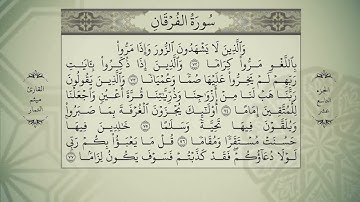 سُورَةُ الْفُرْقَانِ
وَالَّذِينَ لَا يَشْهَدُونَ الزُّورَ وَإِذَا مَرُّوا
بِاللَّغْوِ مَرُّوا كِرَامًا ٧٢ وَالَّذِينَ إِذَا ذُكِّرُوا بِآيَاتِ
رَبِّهِمْ لَمْ يَخِرُّوا عَلَيْهَا صُمًّا وَعُمْيَانًا ٧٣ وَالَّذِينَ يَقُولُونَ
رَبَّنَا هَبْ لَنَا مِنْ أَزْوَاجِنَا وَذُرِّيَّاتِنَا قُرَّةَ أَعْيُنٍ وَاجْعَلْنَا
لِلْمُتَّقِينَ إِمَامًا ٧٤ أُولَئِكَ يُجْزَوْنَ الْغُرْفَةَ بِمَا صَبَرُوا
وَيُلَقَّوْنَ فِيهَا تَحِيَّةً وَسَلَامًا ٧٥ خَالِدِينَ فِيهَا
حَسُنَتْ مُسْتَقَرًّا وَمُقَامًا ٧٦ قُلْ مَا يَعْبَأُ بِكُمْ رَبِّي
لَوْلَا دُعَاؤُكُمْ فَقَدْ كَذَّبْتُمْ فَسَوْفَ يَكُونُ لِزَامًا ٧٧
الجزء
التاسع
عشر
القارئ
ميثم
التمار